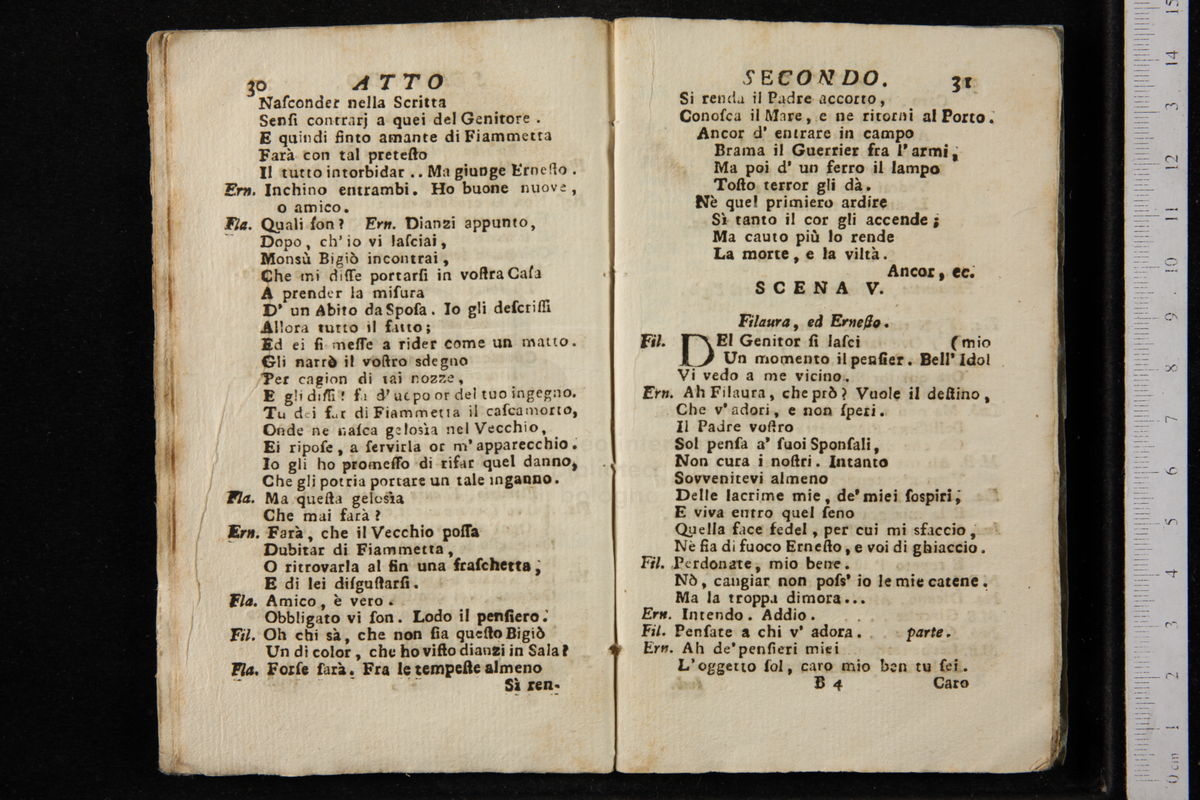 30 ATTO
Naſconder nella Scritta
Senſi contrarj a quei del Genitore.
E quindi finto amante di Fiammetta
Farà con tal preteſto
Il tutto intorbidar .. Ma giunge Erneſto.
Ern. Inchino entrambi. Ho buone nuove,
o amico.
Fla. Quali ſon? Ern. Dianzi appunto,
Dopo, ch' io vi laſciai,
Monsù Bigiò incontrai,
Che mi diſſe portarſi in voſtra Caſa
A prender la miſura
D' un Abito da Spoſa. Io gli deſcriſſi
Allora tutto il fatto;
Ed ei ſi meſſe a rider come un matto.
Gli narrò il voſtro sdegno
Per cagion di tai nozze,
E gli diſſi! fa d' uopo or del tuo ingegno.
Tu dei far di Fiammetta il caſcamorto,
Onde ne naſca geloſìa nel Vecchio,
Ei ripoſe, a ſervirla or m' apparecchio.
Io gli ho promeſſo di rifar quel danno,
Che gli potria portare un tale inganno.
Fla. Ma queſta geloſìa
Che mai farà?
Ern. Farà, che il Vecchio poſſa
Dubitar di Fiammetta,
O ritrovarla al fin una fraſchetta,
E di lei diſguſtarſi.
Fla. Amico, è vero.
Obbligato vi ſon. Lodo il penſiero.
Fil. Oh chi sà, che non ſia queſto Bigiò
Un di color, che ho viſto dianzi in Sala?
Fla. Forſe ſarà. Fra le tempeſte almeno
Sì ren-
SECONDO. 31
Si renda il Padre accorto,
Conoſca il Mare, e ne ritorni al Porto.
Ancor d' entrare in campo
Brama il Guerrier fra l' armi,
Ma poi d' un ferro il lampo
Toſto terror gli dà.
Nè quel primiero ardire
Sì tanto il cor gli accende;
Ma cauto più lo rende
La morte, e la viltà.
Ancor, ec.
SCENA V.
Filaura, ed Erneſto.
Fil. DEl Genitor ſi laſci (mio
Un momento il penſier. Bell' Idol
Vi vedo a me vicino.
Ern. Ah Filaura, che prò? Vuole il deſtino,
Che v' adori, e non ſperi.
Il Padre voſtro
Sol penſa a' ſuoi Sponſali,
Non cura i noſtri. Intanto
Sovvenitevi almeno
Delle lacrime mie, de' miei ſoſpiri,
E viva entro quel ſeno
Quella face fedel, per cui mi sfaccio,
Nè ſia di fuoco Erneſto, e voi di ghiaccio.
Fil. Perdonate, mio bene.
Nò, cangiar non poſs' io le mie catene.
Ma la troppa dimora...
Ern. Intendo. Addio.
Fil. Penſate a chi v' adora. parte.
Ern. Ah de' penſieri miei
L' oggetto ſol, caro mio ben tu ſei.
B 4 Caro
0 cm 1 2 3 4 5 6 7 8 9 10 11 12 13 14 15